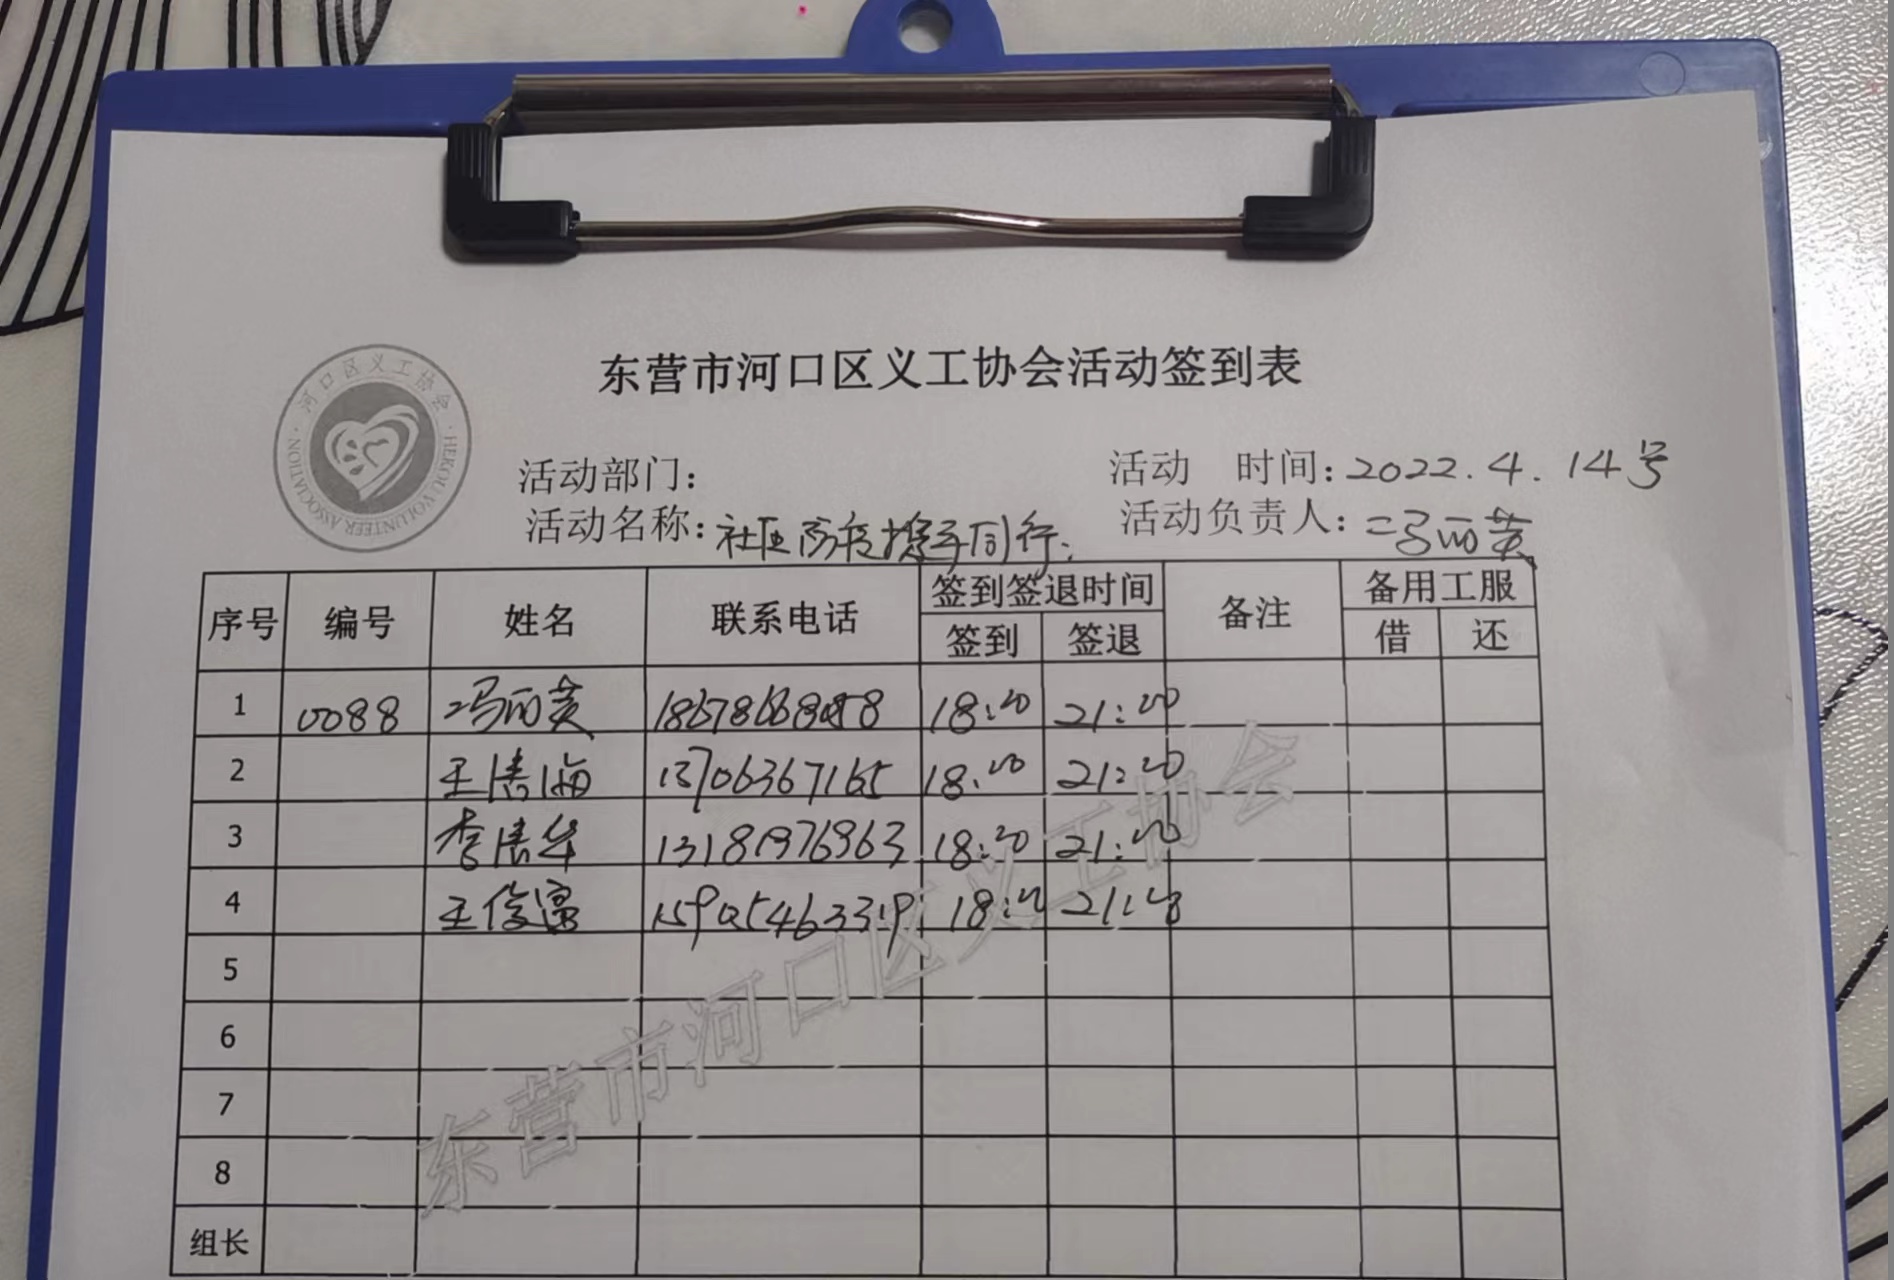 东营市河口区义工协会活动签到表
河口区义工协会
HEKOU VOLUNTEER ASSOCIATION
活动部门： 活动 时间：2022.4.14号
活动名称：社区防疫携手同行. 活动负责人：冯丽英
序号 编号 姓名 联系电话 签到签退时间 备注 备用工服
签到 签退 借 还
1 0088 冯丽英 18:20 21:20
2 王洪海 13706367165 18:20 21:20
3 李洪华 13181976963 18:20 21:20
4 王俊富 18:20 21:20
5
6
7
8
组长
东营市河口区义工协会